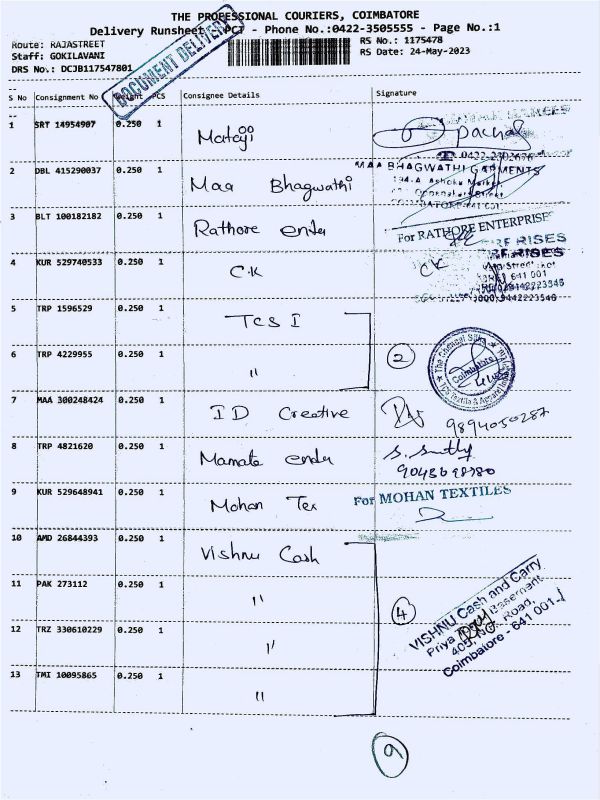 THE PROFESSIONAL COURIERS, COIMBATORE
Delivery Runsheet - PCT - Phone No.:0422-3505555 - Page No.:1
Route: RAJASTREET
Staff: GOKILAVANI
DRS No.: DCJB117547801
RS No.: 1175478
RS Date: 24-May-2023
DOCUMENT DELIVERY
S No Consignment No Weight PCS Consignee Details Signature
1 SRT 14954907 0.250 1 Mataji
2 DBL 415290037 0.250 1 Maa Bhagwathi
MAA BHAGWATHI GARMENTS
3 BLT 100182182 0.250 1 Rathore enter
For RATHORE ENTERPRISE
4 KUR 529740533 0.250 1 C.K CK
641 001
5 TRP 1596529 0.250 1 TCS I
6 TRP 4229955 0.250 1 "
2
The Chennai Silks
Coimbatore
7 MAA 300248424 0.250 1 ID Creative
9894050287
8 TRP 4821620 0.250 1 Mamata enter
9 KUR 529648941 0.250 1 Mohan Tex
For MOHAN TEXTILES
10 AMD 26844393 0.250 1 Vishnu Cash
11 PAK 273112 0.250 1 "
12 TRZ 330610229 0.250 1 "
13 TMI 10095865 0.250 1 "
4
VISHNU Cash and Carry
Priya Basement
Road,
Coimbatore - 641 001.
9